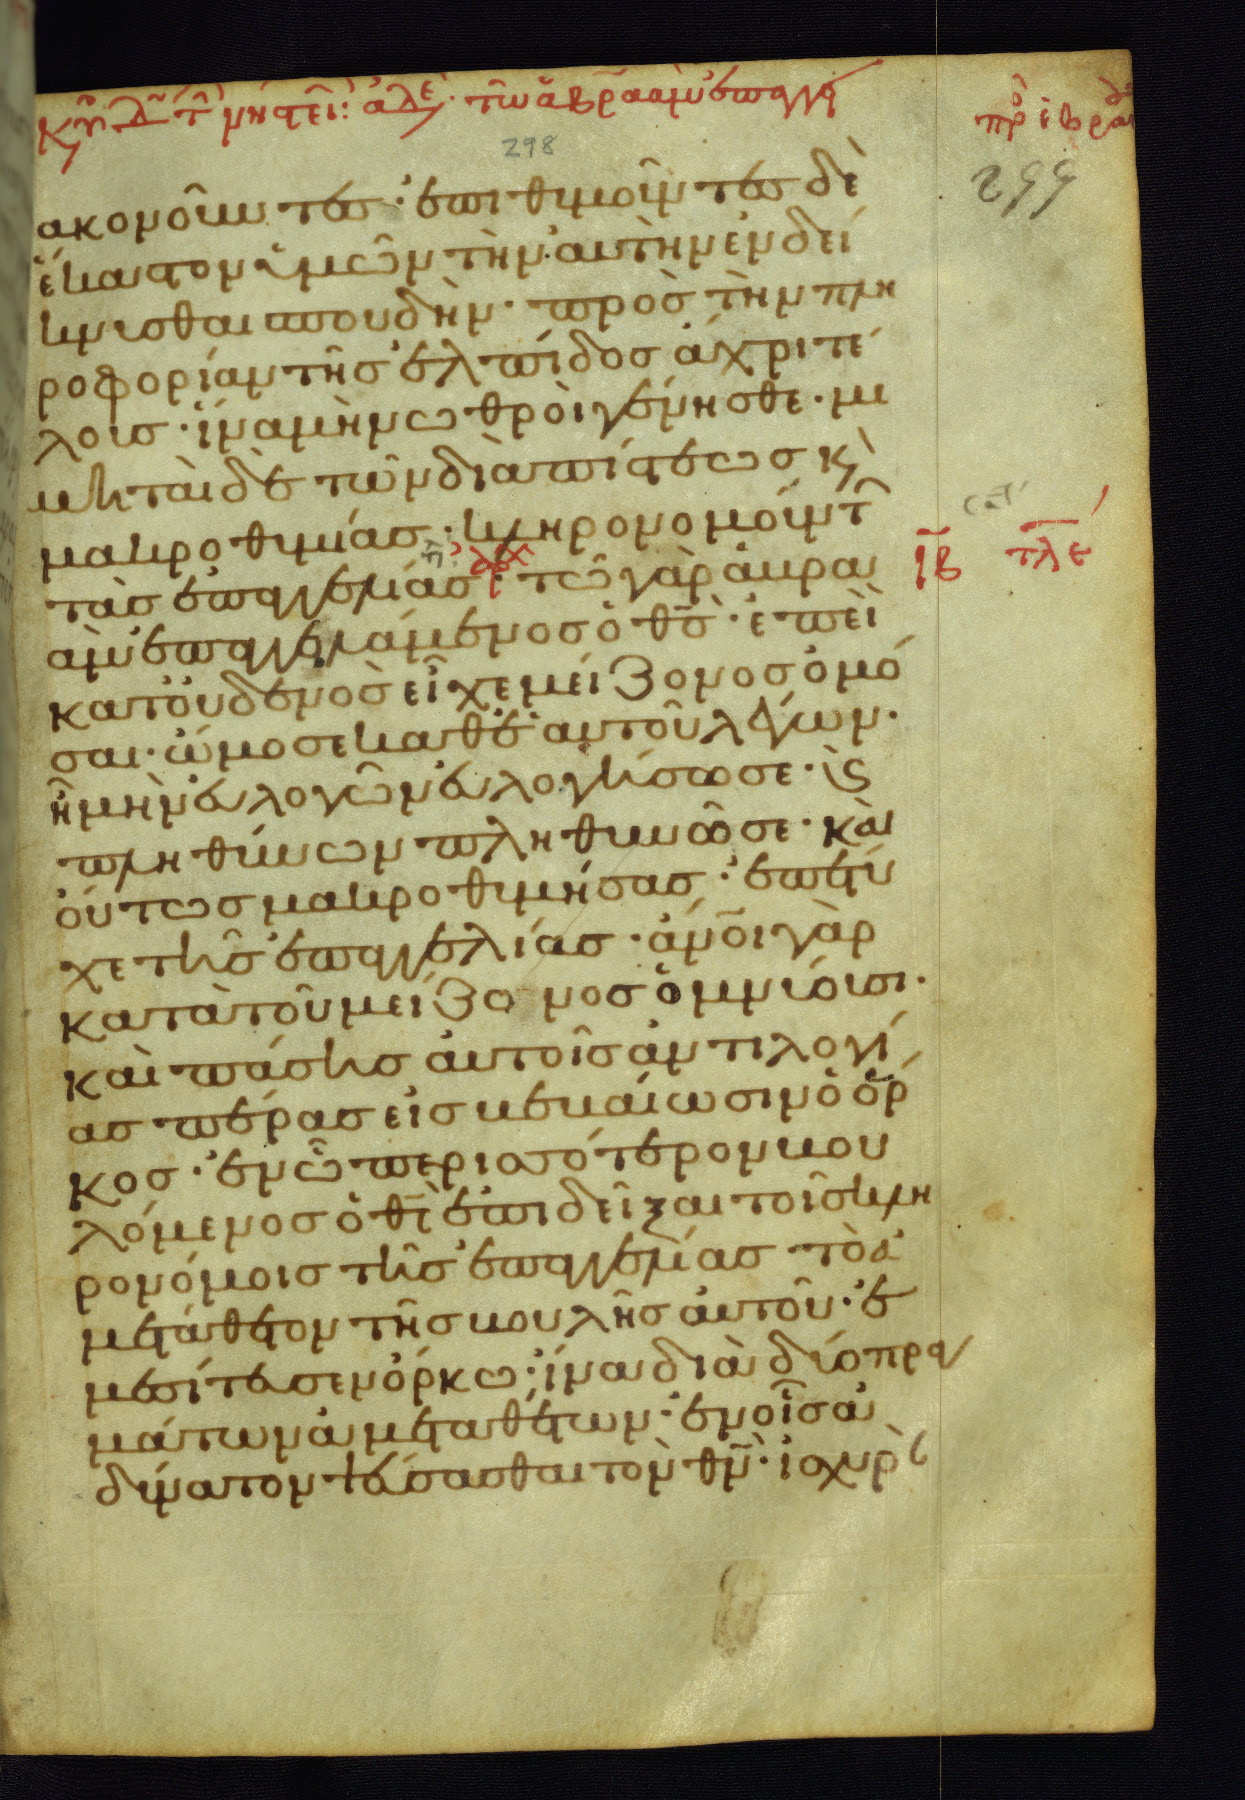 κυ δ τ νηστει: ἀδελ τῶ ἀβραὰμ ἐπαγγ
πρ ἑβρα
298
299
ακονοῦντες· ἐπιθυμοῦμεν δὲ
ἕκαστον ὑμῶν τὴν αὐτὴν ἐνδεί
κνυσθαι σπουδὴν· πρὸς τὴν πλη
ροφορίαν τῆς ἐλπίδος ἄχρι τέ
λους· ἵνα μὴ νωθροὶ γένησθε· μι
μηταὶ δὲ τῶν διὰ πίστεως κὶ
μακροθυμίας· κληρονομούντ
τὰς ἐπαγγελίας· τῶ γὰρ ἀβρα
ιβ
τλε
ἀὰμ ἐπαγγειλάμενος ὁ θς· ἐπεὶ
κατ οὐδενὸς εἶχε μείζονος ὀμό
σαι· ὤμοσε καθ ἑαυτοῦ λέγων·
ἦ μὴν εὐλογῶν εὐλογήσω σε· κς
πληθύνων πληθυνῶ σε· καὶ
οὕτως μακροθυμήσας· ἐπέτυ
χε τῆς ἐπαγγελίας· ἄνοι γὰρ
κατὰ τοῦ μείζονος ὀμνύουσι·
καὶ πάσης αὐτοῖς ἀντιλογί
ας πέρας εἰς βεβαίωσιν ὁ ὅρ
κος· ἐν ὧ περισσότερον βου
λόμενος ὁ θς ἐπιδεῖξαι τοῖς κλη
ρονόμοις τῆς ἐπαγγελίας τὸ ἀ
μετάθετον τῆς βουλῆς αὐτοῦ· ἐ
μεσίτευσεν ὅρκω· ἵνα διὰ δύο πραγ
μάτων ἀμεταθέτων· ἐν οἷς ἀ
δύνατον ψεύσασθαι τὸν θν· ἰσχυρὰ